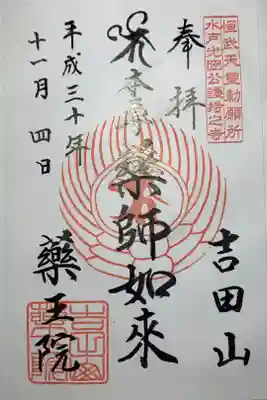 桓武天皇勅願所
水戸光圀公護持之寺
奉拝
吉田山
本尊 藥師如来
平成三十年
十一月四日
藥王院